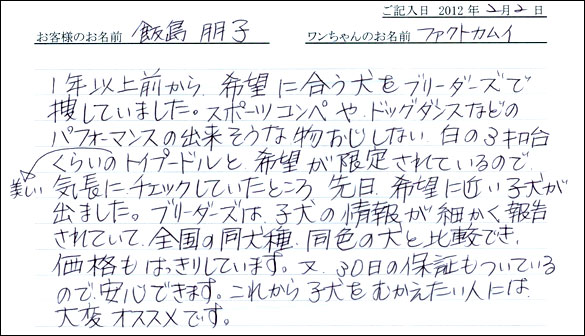 ご記入日 2012年 2月 2日
お客様のお名前 飯島 朋子 ワンちゃんのお名前 ファクトカムイ
1年以上前から、希望に合う犬をブリーダーズで
捜していました。スポーツコンペや、ドッグダンスなどの
パフォーマンスの出来そうな物おじしない、白の3キロ台
くらいのトイプードルと、希望が限定されているので、
美しい 気長にチェックしていたところ、先日、希望に近い子犬が
出ました。ブリーダーズは、子犬の情報が細かく報告
されていて、全国の同犬種、同色の犬と比較でき、
価格もはっきりしています。又、30日の保証もついている
ので安心できます。これから子犬をむかえたい人には、
大変オススメです。